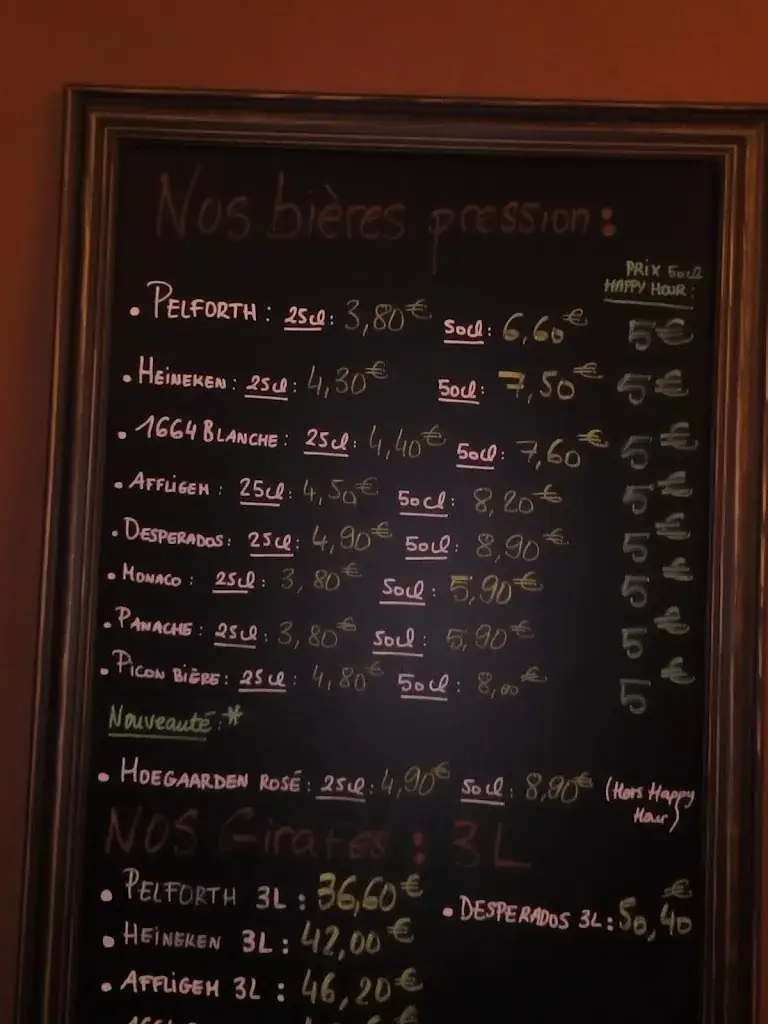 Nos bières pression :
PRIX 50cl
HAPPY HOUR :
• PELFORTH : 25cl : 3,80€ 50cl : 6,60€ 5€
• HEINEKEN : 25cl : 4,30€ 50cl : 7,50€ 5€
• 1664 BLANCHE : 25cl : 4,40€ 50cl : 7,60€ 5€
• AFFLIGEM : 25cl : 4,50€ 50cl : 8,20€ 5€
• DESPERADOS : 25cl : 4,90€ 50cl : 8,90€ 5€
• MONACO : 25cl : 3,80€ 50cl : 5,90€ 5€
• PANACHE : 25cl : 3,80€ 50cl : 5,90€ 5€
• PICON BIÈRE : 25cl : 4,80€ 50cl : 8,00€ 5€
Nouveauté : *
• HOEGAARDEN ROSÉ : 25cl : 4,90€ 50cl : 8,90€ (Hors Happy
Hour)
NOS Girafes : 3L
• PELFORTH 3L : 36,60€
• DESPERADOS 3L : 50,40€
• HEINEKEN 3L : 42,00€
• AFFLIGEM 3L : 46,20€